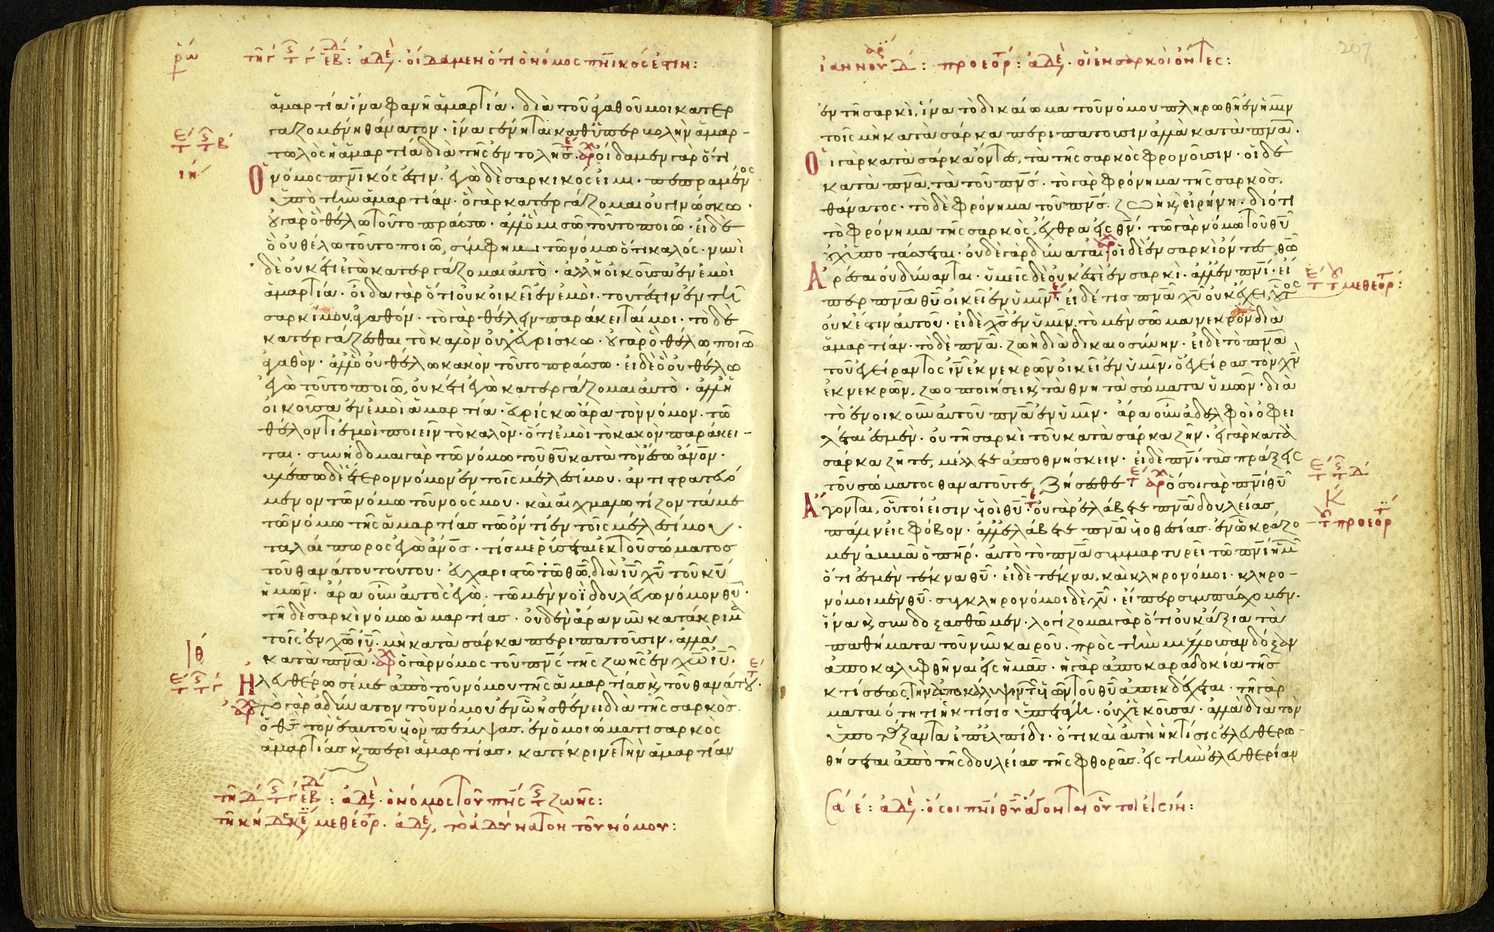 οἴδαμεν ὅτι ὁ νόμος πν̅ικός ἐστιν:
ἁμαρτία ἵνα φανῆ ἁμαρτία· διὰ τοῦ ἀγαθοῦ μοι κατερ
γαζομένη θάνατον· ἵνα γένηται καθ' ὑπερβολὴν ἁμαρ-
τωλὸς ἡ ἁμαρτία διὰ τῆς ἐντολῆς· οἴδαμεν γὰρ ὅτι
Ὁ νόμος πν̅ικός ἐστιν· ἐγὼ δὲ σαρκικός εἰμι· πεπραμένος
ὑπὸ τὴν ἁμαρτίαν· ὃ γὰρ κατεργάζομαι οὐ γινώσκω·
οὐ γὰρ ὃ θέλω τοῦτο πράσσω· ἀλλ' ὃ μισῶ τοῦτο ποιῶ· εἰ δὲ
ὃ οὐ θέλω τοῦτο ποιῶ, σύμφημι τῶ νόμω ὅτι καλός· νυνὶ
δὲ οὐκέτι ἐγὼ κατεργάζομαι αὐτὸ· ἀλλ' ἡ οἰκοῦσα ἐν ἐμοὶ
ἁμαρτία· οἶδα γὰρ ὅτι οὐκ οἰκεῖ ἐν ἐμοὶ· τουτέστιν ἐν τῆ
σαρκί μου, ἀγαθὸν· τὸ γὰρ θέλειν παράκειταί μοι· τὸ δὲ
κατεργάζεσθαι τὸ καλὸν οὐχ εὑρίσκω· οὐ γὰρ ὃ θέλω ποιῶ
ἀγαθὸν· ἀλλ' ὃ οὐ θέλω κακὸν τοῦτο πράσσω· εἰ δὲ ὃ οὐ θέλω
ἐγὼ τοῦτο ποιῶ, οὐκέτι ἐγὼ κατεργάζομαι αὐτὸ· ἀλλ' ἡ
οἰκοῦσα ἐν ἐμοὶ ἁμαρτία· εὑρίσκω ἄρα τὸν νόμον· τῶ
θέλοντι ἐμοὶ ποιεῖν τὸ καλὸν· ὅτι ἐμοὶ τὸ κακὸν παράκει-
ται· συνήδομαι γὰρ τῶ νόμω τοῦ θ̅υ̅ κατὰ τὸν ἔσω ἄν̅ο̅ν̅·
βλέπω δὲ ἕτερον νόμον ἐν τοῖς μέλεσί μου· ἀντιστρατευό
μενον τῶ νόμω τοῦ νοός μου· καὶ αἰχμαλωτίζοντά με
τῶ νόμω τῆς ἁμαρτίας τῶ ὄντι ἐν τοῖς μέλεσί μου·
ταλαίπωρος ἐγὼ ἄν̅ο̅ς̅· τίς με ῥύσεται ἐκ τοῦ σώματος
τοῦ θανάτου τούτου· εὐχαριστῶ τῶ θ̅ω̅ διὰ ι̅υ̅ χ̅υ̅ τοῦ κ̅υ̅
ἡμῶν· ἄρα οὖν αὐτὸς ἐγὼ· τῶ μὲν νοῒ δουλεύω νόμον θ̅υ̅·
τῆ δὲ σαρκὶ νόμω ἁμαρτίας· οὐδὲν ἄρα νῦν κατάκριμα
τοῖς ἐν χ̅ω̅ ι̅υ̅· μὴ κατὰ σάρκα περιπατοῦσιν· ἀλλὰ
κατὰ πν̅α̅· ὁ γὰρ νόμος τοῦ πν̅ς̅ τῆς ζωῆς ἐν χ̅ω̅ ι̅υ̅·
Ἠλευθέρωσέ με ἀπὸ τοῦ νόμου τῆς ἁμαρτίας καὶ τοῦ θανάτου·
τὸ γὰρ ἀδύνατον τοῦ νόμου ἐν ὧ ἠσθένει διὰ τῆς σαρκὸς·
ὁ θ̅ς̅ τὸν ἑαυτοῦ υἱὸν πέμψας· ἐν ὁμοιώματι σαρκὸς
ἁμαρτίας καὶ περὶ ἁμαρτίας· κατέκρινε τὴν ἁμαρτίαν
ὁ νόμος τοῦ πν̅ς̅ τ ζωῆς:
τὸ ἀδύνατον τοῦ νόμου:
207
οἱ ἐν σαρκὶ ὄντες:
ἐν τῆ σαρκὶ, ἵνα τὸ δικαίωμα τοῦ νόμου πληρωθῆ ἐν ἡμῖν
τοῖς μὴ κατὰ σάρκα περιπατοῦσιν ἀλλὰ κατὰ πν̅α̅·
Οἱ γὰρ κατὰ σάρκα ὄντες, τὰ τῆς σαρκὸς φρονοῦσιν· οἱ δὲ
κατὰ πν̅α̅, τὰ τοῦ πν̅ς̅· τὸ γὰρ φρόνημα τῆς σαρκὸς,
θάνατος· τὸ δὲ φρόνημα τοῦ πν̅ς̅, ζωὴ καὶ εἰρήνη· διότι
τὸ φρόνημα τῆς σαρκὸς, ἔχθρα εἰς θ̅ν̅· τῶ γὰρ νόμω τοῦ θ̅υ̅
οὐχ ὑποτάσσεται· οὐδὲ γὰρ δύναται· οἱ δὲ ἐν σαρκὶ ὄντες, θ̅ω̅
Ἀρέσαι οὐ δύνανται· ὑμεῖς δὲ οὐκ ἐστὲ ἐν σαρκὶ· ἀλλ' ἐν πν̅ι̅· εἴ
περ πν̅α̅ θ̅υ̅ οἰκεῖ ἐν ὑμῖν· εἰ δέ τις πν̅α̅ χ̅υ̅ οὐκ ἔχει, οὗτος
οὐκ ἔστιν αὐτοῦ· εἰ δὲ χ̅ς̅ ἐν ὑμῖν, τὸ μὲν σῶμα νεκρὸν δια
ἁμαρτίαν· τὸ δὲ πν̅α̅· ζωὴ διὰ δικαιοσύνην· εἰ δὲ τὸ πν̅α̅
τοῦ ἐγείραντος ι̅ν̅ ἐκ νεκρῶν οἰκεῖ ἐν ὑμῖν, ὁ ἐγείρας τὸν χ̅ν̅
ἐκ νεκρῶν, ζωοποιήσει καὶ τὰ θνητὰ σώματα ὑμῶν· διὰ
τὸ ἐνοικοῦν αὐτοῦ πν̅α̅ ἐν ὑμῖν· ἄρα οὖν ἀδελφοὶ ὀφει
λέται ἐσμὲν· οὐ τῆ σαρκὶ τοῦ κατὰ σάρκα ζῆν· εἰ γὰρ κατὰ
σάρκα ζῆτε, μέλλετε ἀποθνήσκειν· εἰ δὲ πν̅ι̅ τὰς πράξεις
τοῦ σώματος θανατοῦτε, ζήσεσθε· ὅσοι γὰρ πν̅ι̅ θ̅υ̅
Ἄγονται, οὗτοί εἰσιν υἱοὶ θ̅υ̅· οὐ γὰρ ἐλάβετε πν̅α̅ δουλείας
πάλιν εἰς φόβον· ἀλλ' ἐλάβετε πν̅α̅ υἱοθεσίας· ἐν ὧ κράζο
μεν ἀββᾶ ὁ πη̅ρ̅· αὐτὸ τὸ πν̅α̅ συμμαρτυρεῖ τῶ πν̅ι̅ ἡμῶν
ὅτι ἐσμὲν τέκνα θ̅υ̅· εἰ δὲ τέκνα, καὶ κληρονόμοι· κληρο-
νόμοι μὲν θ̅υ̅· συγκληρονόμοι δὲ χ̅υ̅· εἴπερ συμπάσχομεν,
ἵνα καὶ συνδοξασθῶμεν· λογίζομαι γὰρ ὅτι οὐκ ἄξια τὰ
παθήματα τοῦ νῦν καιροῦ· πρὸς τὴν μέλλουσαν δόξαν
ἀποκαλυφθῆναι εἰς ἡμᾶς· ἡ γὰρ ἀποκαραδοκία τῆς
κτίσεως τὴν ἀποκάλυψιν τῶν υἱῶν τοῦ θ̅υ̅ ἀπεκδέχεται· τῆ γὰρ
ματαιότητι ἡ κτίσις ὑπετάγη· οὐχ ἑκοῦσα· ἀλλὰ διὰ τὸν
ὑποτάξαντα ἐπ' ἐλπίδι· ὅτι καὶ αὐτὴ ἡ κτίσις ἐλευθερω-
θήσεται ἀπὸ τῆς δουλείας τῆς φθορᾶς· εἰς τὴν ἐλευθερίαν
ὅσοι πν̅ι̅ θ̅υ̅ ἄγονται οὗτοι εἰσίν: